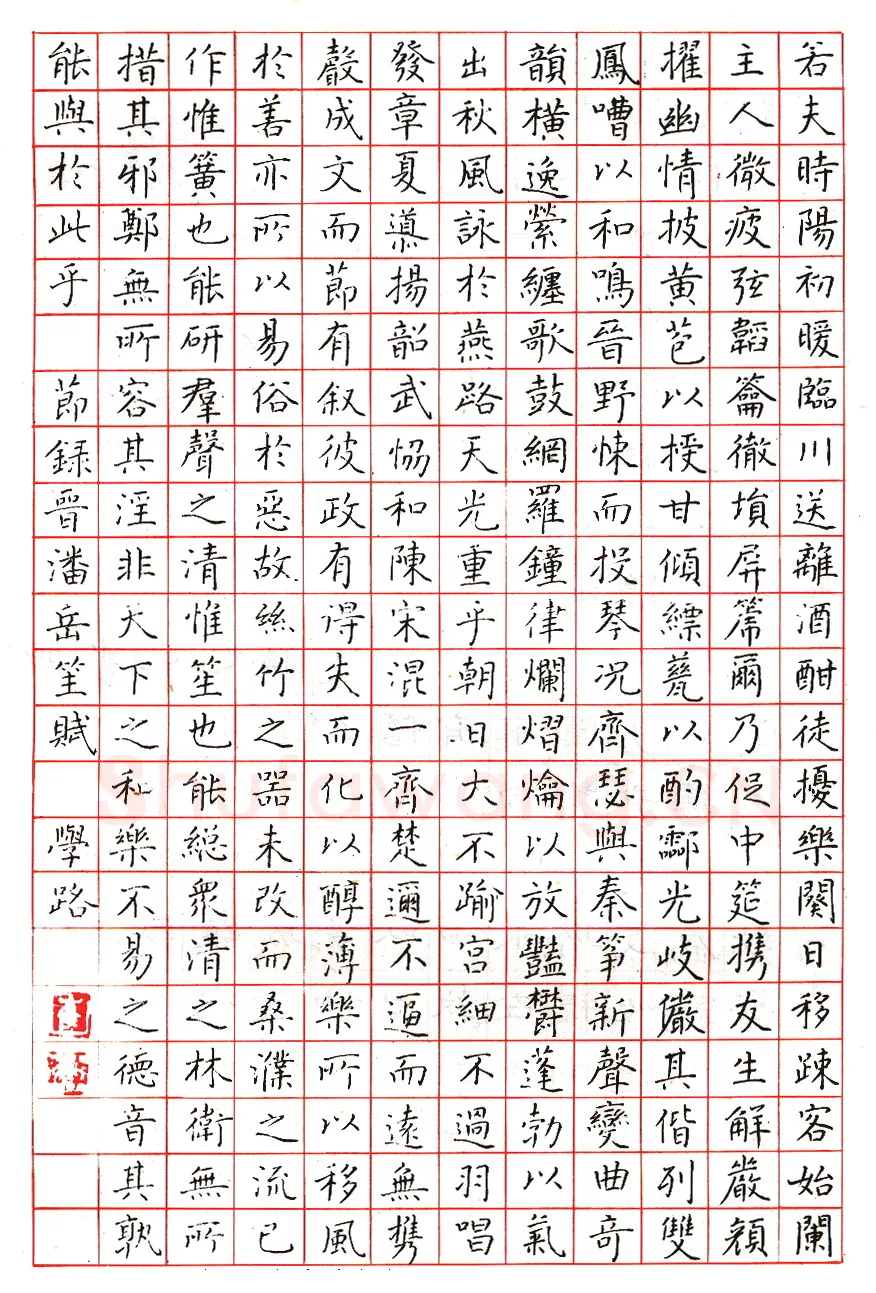 若夫時陽初暖臨川送離酒酣徒擾樂闋日移踈客始闌
主人微疲弦韜籥徹塤屏箎爾乃促中筵携友生解嚴顏
擢幽情披黃苞以授甘傾縹甆以酌酃光岐儼其偕列雙
鳳嘈以和鳴晉野悚而投琴況齊瑟與秦箏新聲變曲奇
韻橫逸縈纏歌鼓網羅鐘律爛熠爚以放豔欝蓬勃以氣
出秋風詠於燕路天光重乎朝日大不踰宮細不過羽唱
發章夏導揚韶武恊和陳宋混一齊楚邇不逼而遠無携
聲成文而節有叙彼政有得失而化以醇薄樂所以移風
於善亦所以易俗於惡故絲竹之器未改而桑濮之流已
作惟簧也能研羣聲之清惟笙也能總衆清之林衛無所
措其邪鄭無所容其淫非天下之和樂不易之德音其孰
能與於此乎 節録晉潘岳笙賦 學路